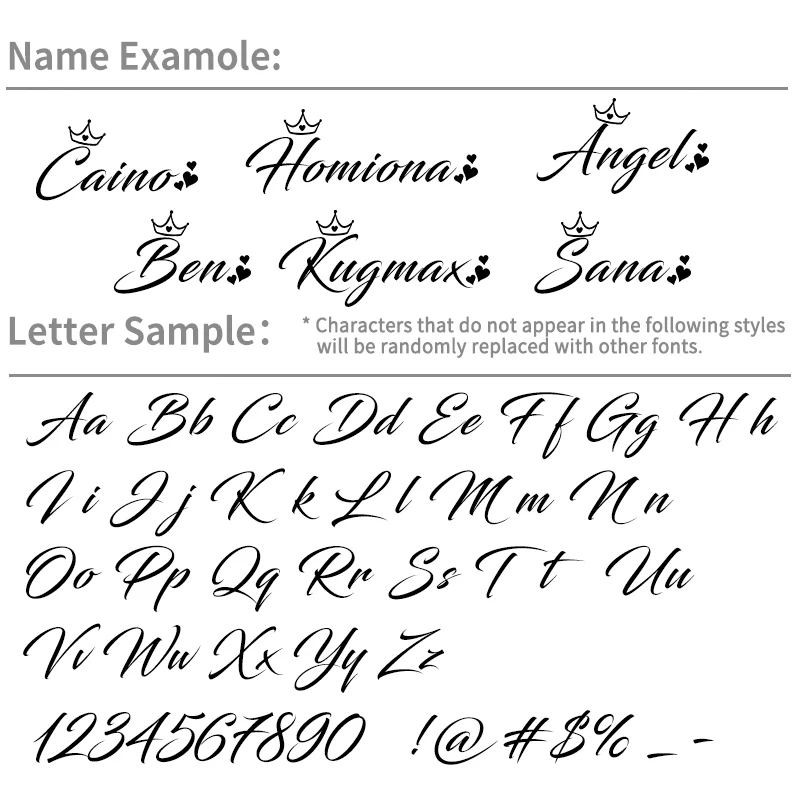 Name Examole:
Caino Homiona Angel
Ben Kugmax Sana
Letter Sample:
* Characters that do not appear in the following styles
will be randomly replaced with other fonts.
Aa Bb Cc Dd Ee Ff Gg H h
I i J j K k L l M m N n
Oo Pp Qq Rr Ss T t Uu
Vv Ww Xx Yy Zz
1234567890 !@#$% _ -